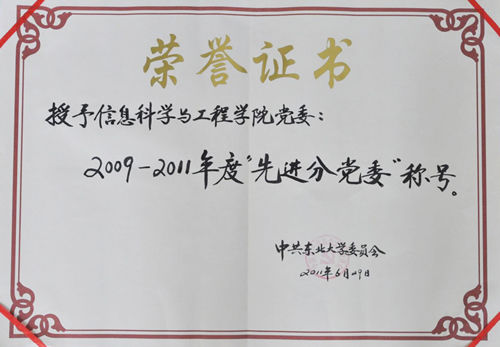 荣誉证书
授予信息科学与工程学院党委：
2009-2011年度“先进分党委”称号。
中共东北大学委员会
2011年6月29日